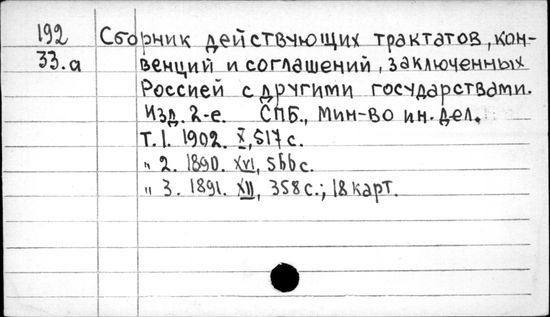 192 Сборник действующих трактатов, кон-
33.а венций и соглашений, заключенных
Россией с другими государствами.
Изд. 2-е. СПБ., Мин-во ин. дел.
Т. 1. 1902. X, 517 с.
" 2. 1890. XVI, 566 с.
" 3. 1891. XII, 358 с.; 18 карт.